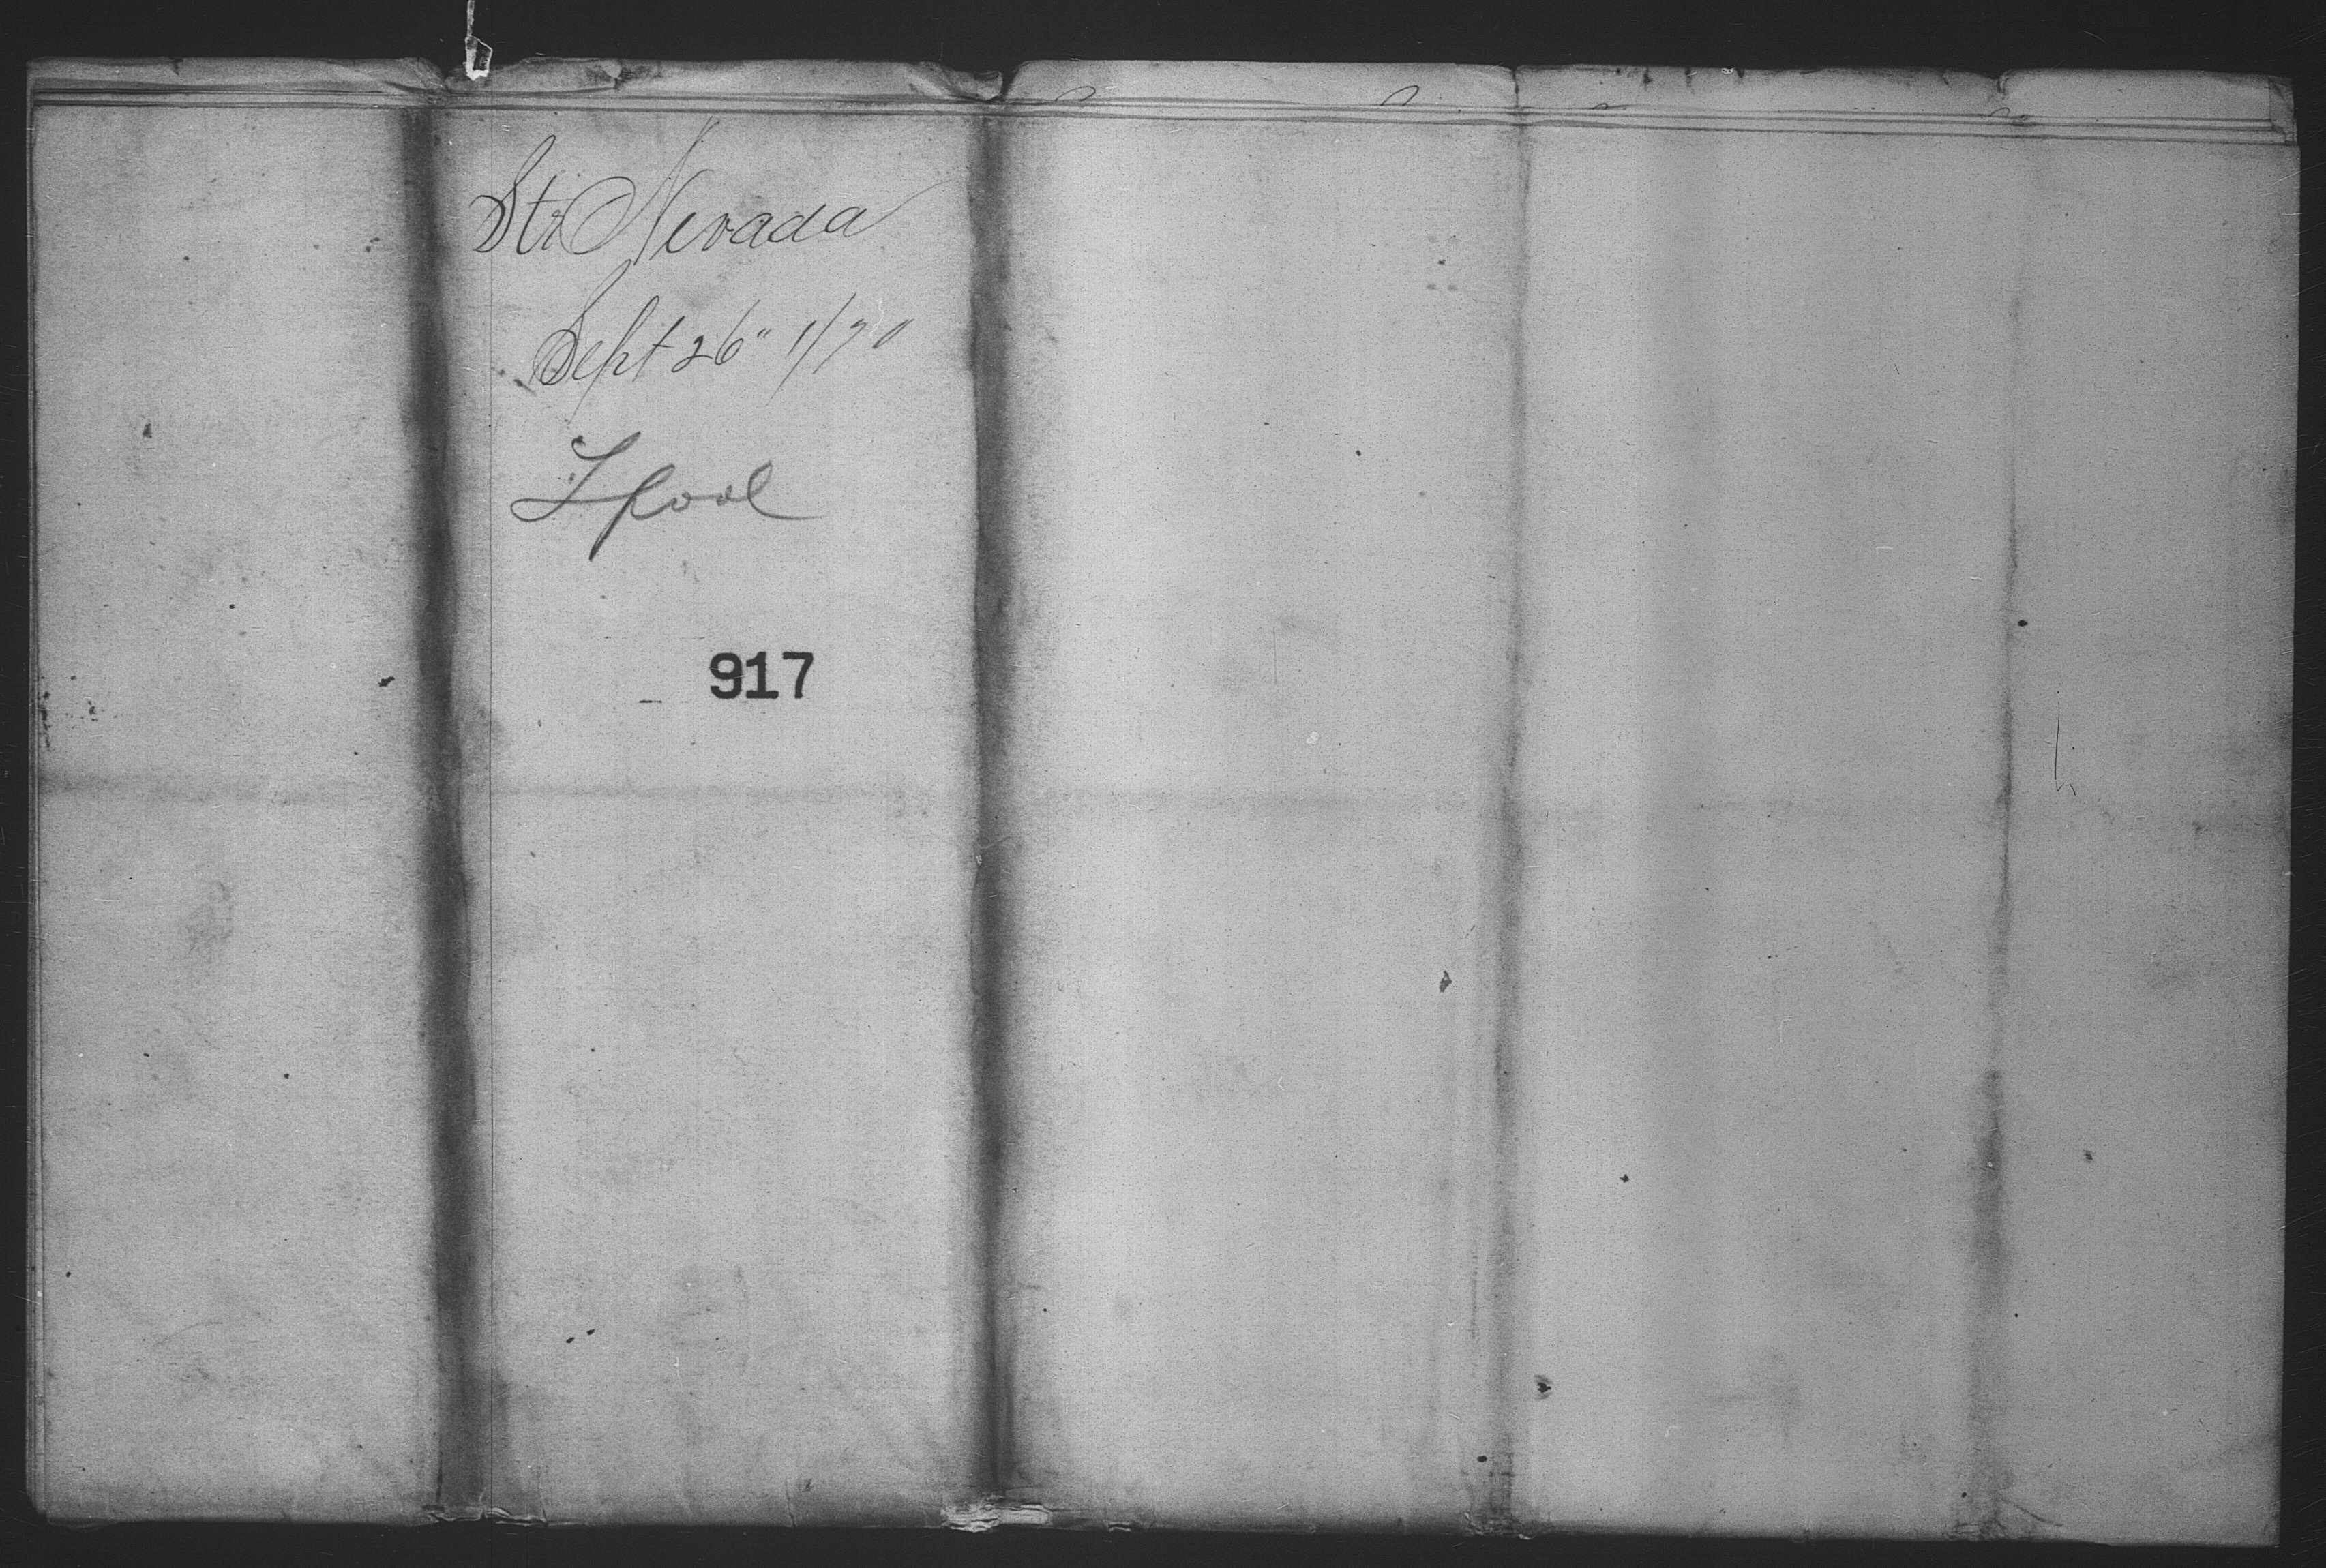 Str Nevada
Sept 26" 1/70
Lpool
917